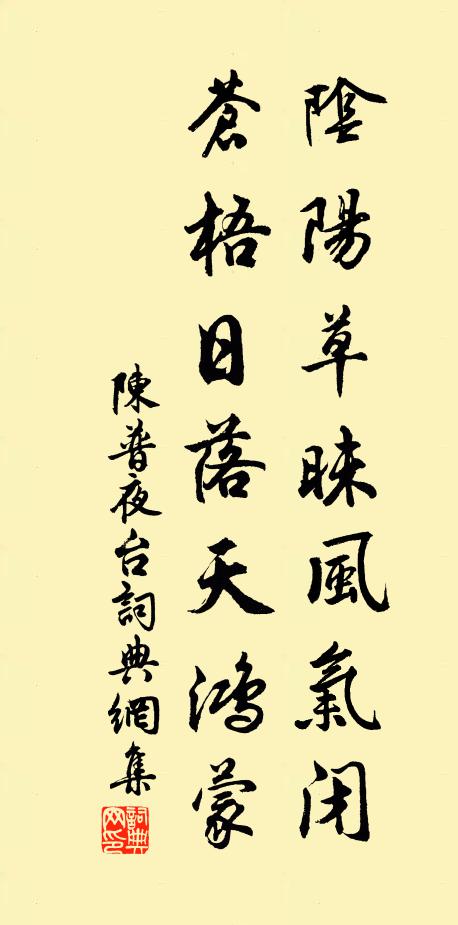 陰陽草昧風氣闭
蒼梧日落天鴻蒙
陳普夜台詞典網集
詞典网印